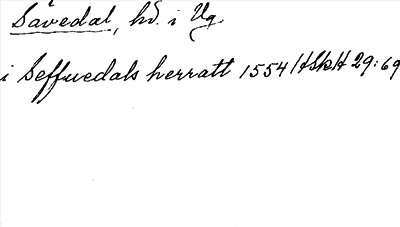 Sävedal, hd. i Vg.
i Seffuedals herratt 1554 HSkH 29:69